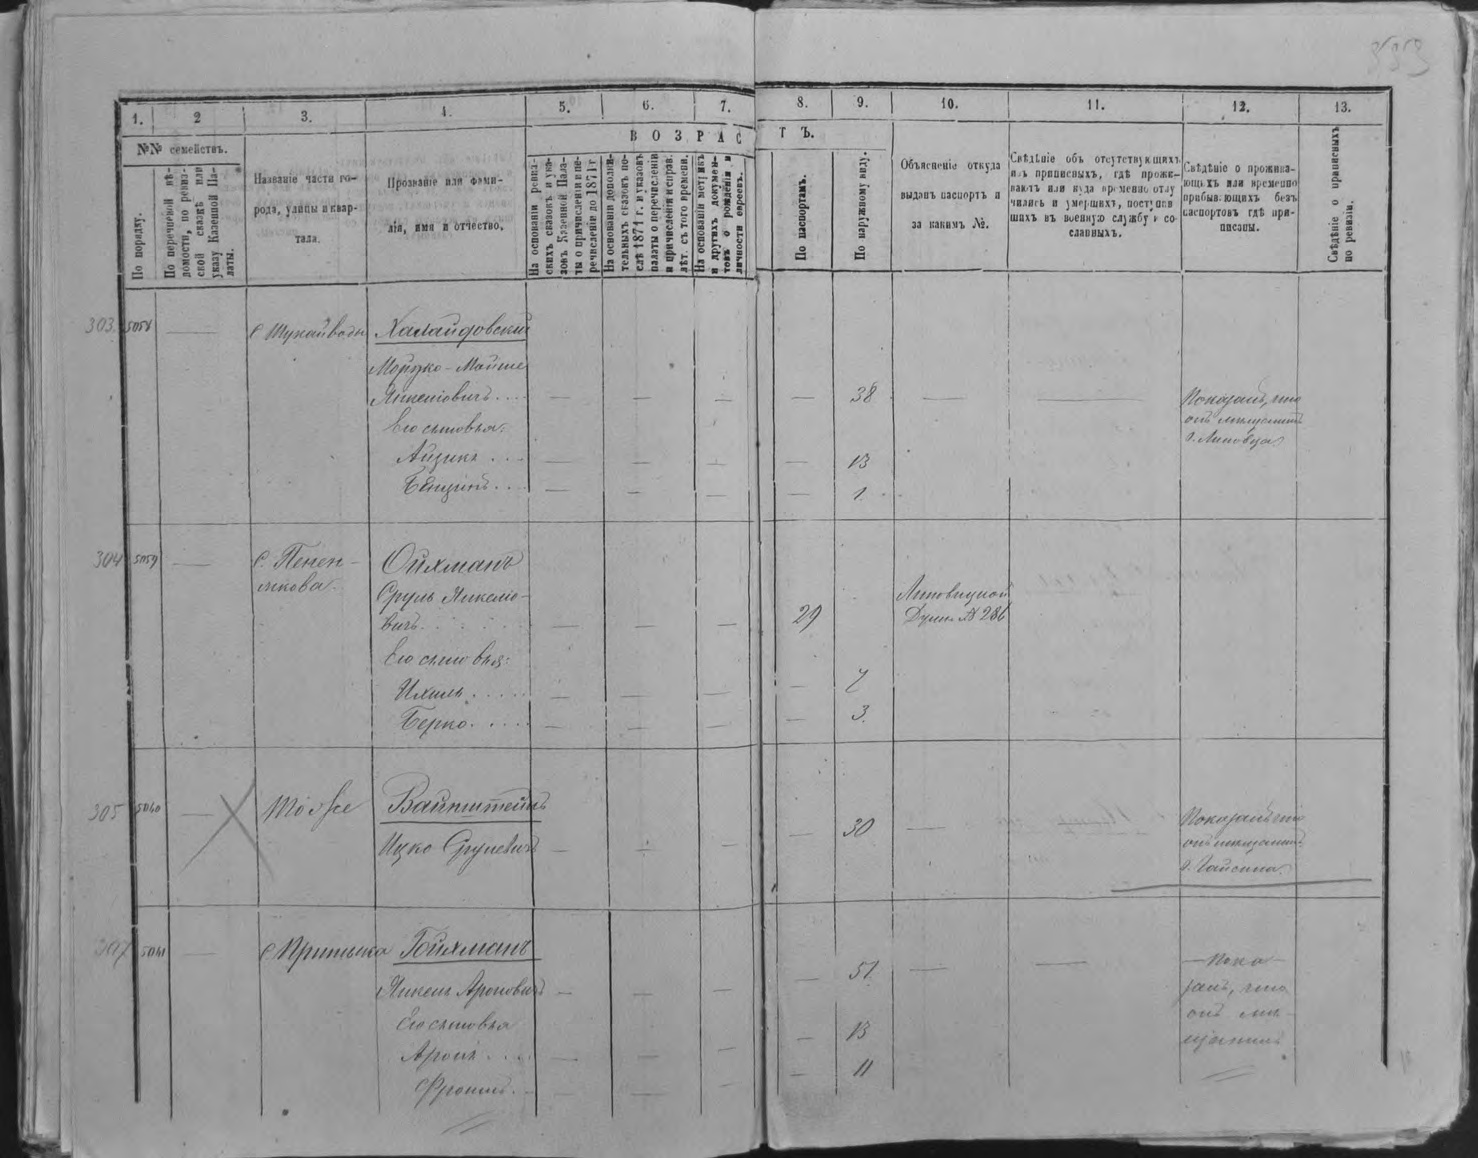 1. 2 3. 4. 5. 6. 7. 8. 9. 10. 11. 12. 13.
№№ семействъ.
По порядку.
По перечневой вѣдомости, по ревизской сказкѣ или указу Казенной Палаты.
Названіе части города, улицы и квартала.
Прозваніе или фамилія, имя и отчество.
ВОЗРАСТЪ.
На основаніи ревизскихъ сказокъ и указокъ Казенной Палаты о причисленіи и перечисленіи до 1874 г
На основаніи дополнительныхъ сказокъ послѣ 1874 г. и указовъ палаты о перечисленіи и причисленіи и справ. лѣт. съ того времени.
На основаніи метрикъ и другихъ документовъ о рожденіи и личности евреевъ.
По паспортамъ.
По наружному виду.
Объясненіе откуда
выданъ паспортъ и
за какимъ №.
Свѣдѣніе объ отсутствующихъ
изъ приписныхъ, гдѣ прожи-
ваютъ или куда временно отлу
чились и умершихъ, поступив
шихъ въ военную службу и со-
сланныхъ.
Свѣдѣніе о прожива-
ющихъ или временно
прибывающихъ безъ
паспортовъ гдѣ при-
писаны.
Свѣдѣніе о неприписныхъ по ревизіи.
303. 5058 — с Шукайводы Халаидовскій
Мошко-Мойше
Янкеліовичъ . . . — — — — 38 — — Показалъ, что
Его сыновья: онъ мещанинъ
г. Липовца
Айзикъ . . . — — — — 13
Бенціонъ . . . — — — — 1
304 5059 — с. Пенен-
жкова. Ойхманъ
Сруль Янкеліо-
вичъ. . . . . . — — — 29 Липовецкой
Думы № 286
Его сыновья:
Ихиль . . . . . — — — — 7
Берко . . . . . — — — — 3.
305 5060 — Тоже Вайнштейнъ
Ицко Срулевичъ — — — — 30 — Показалъ что
онъ мещанинъ
г. Гайсина.
307 5061 — с Притыка Гойхманъ
Янкель Ароновичъ — — — — 51 — — Пока-
залъ, что
онъ ме-
щанинъ
Его сыновья
Аронъ . . . . — — — — 13
Фроимъ . . — — — — 11